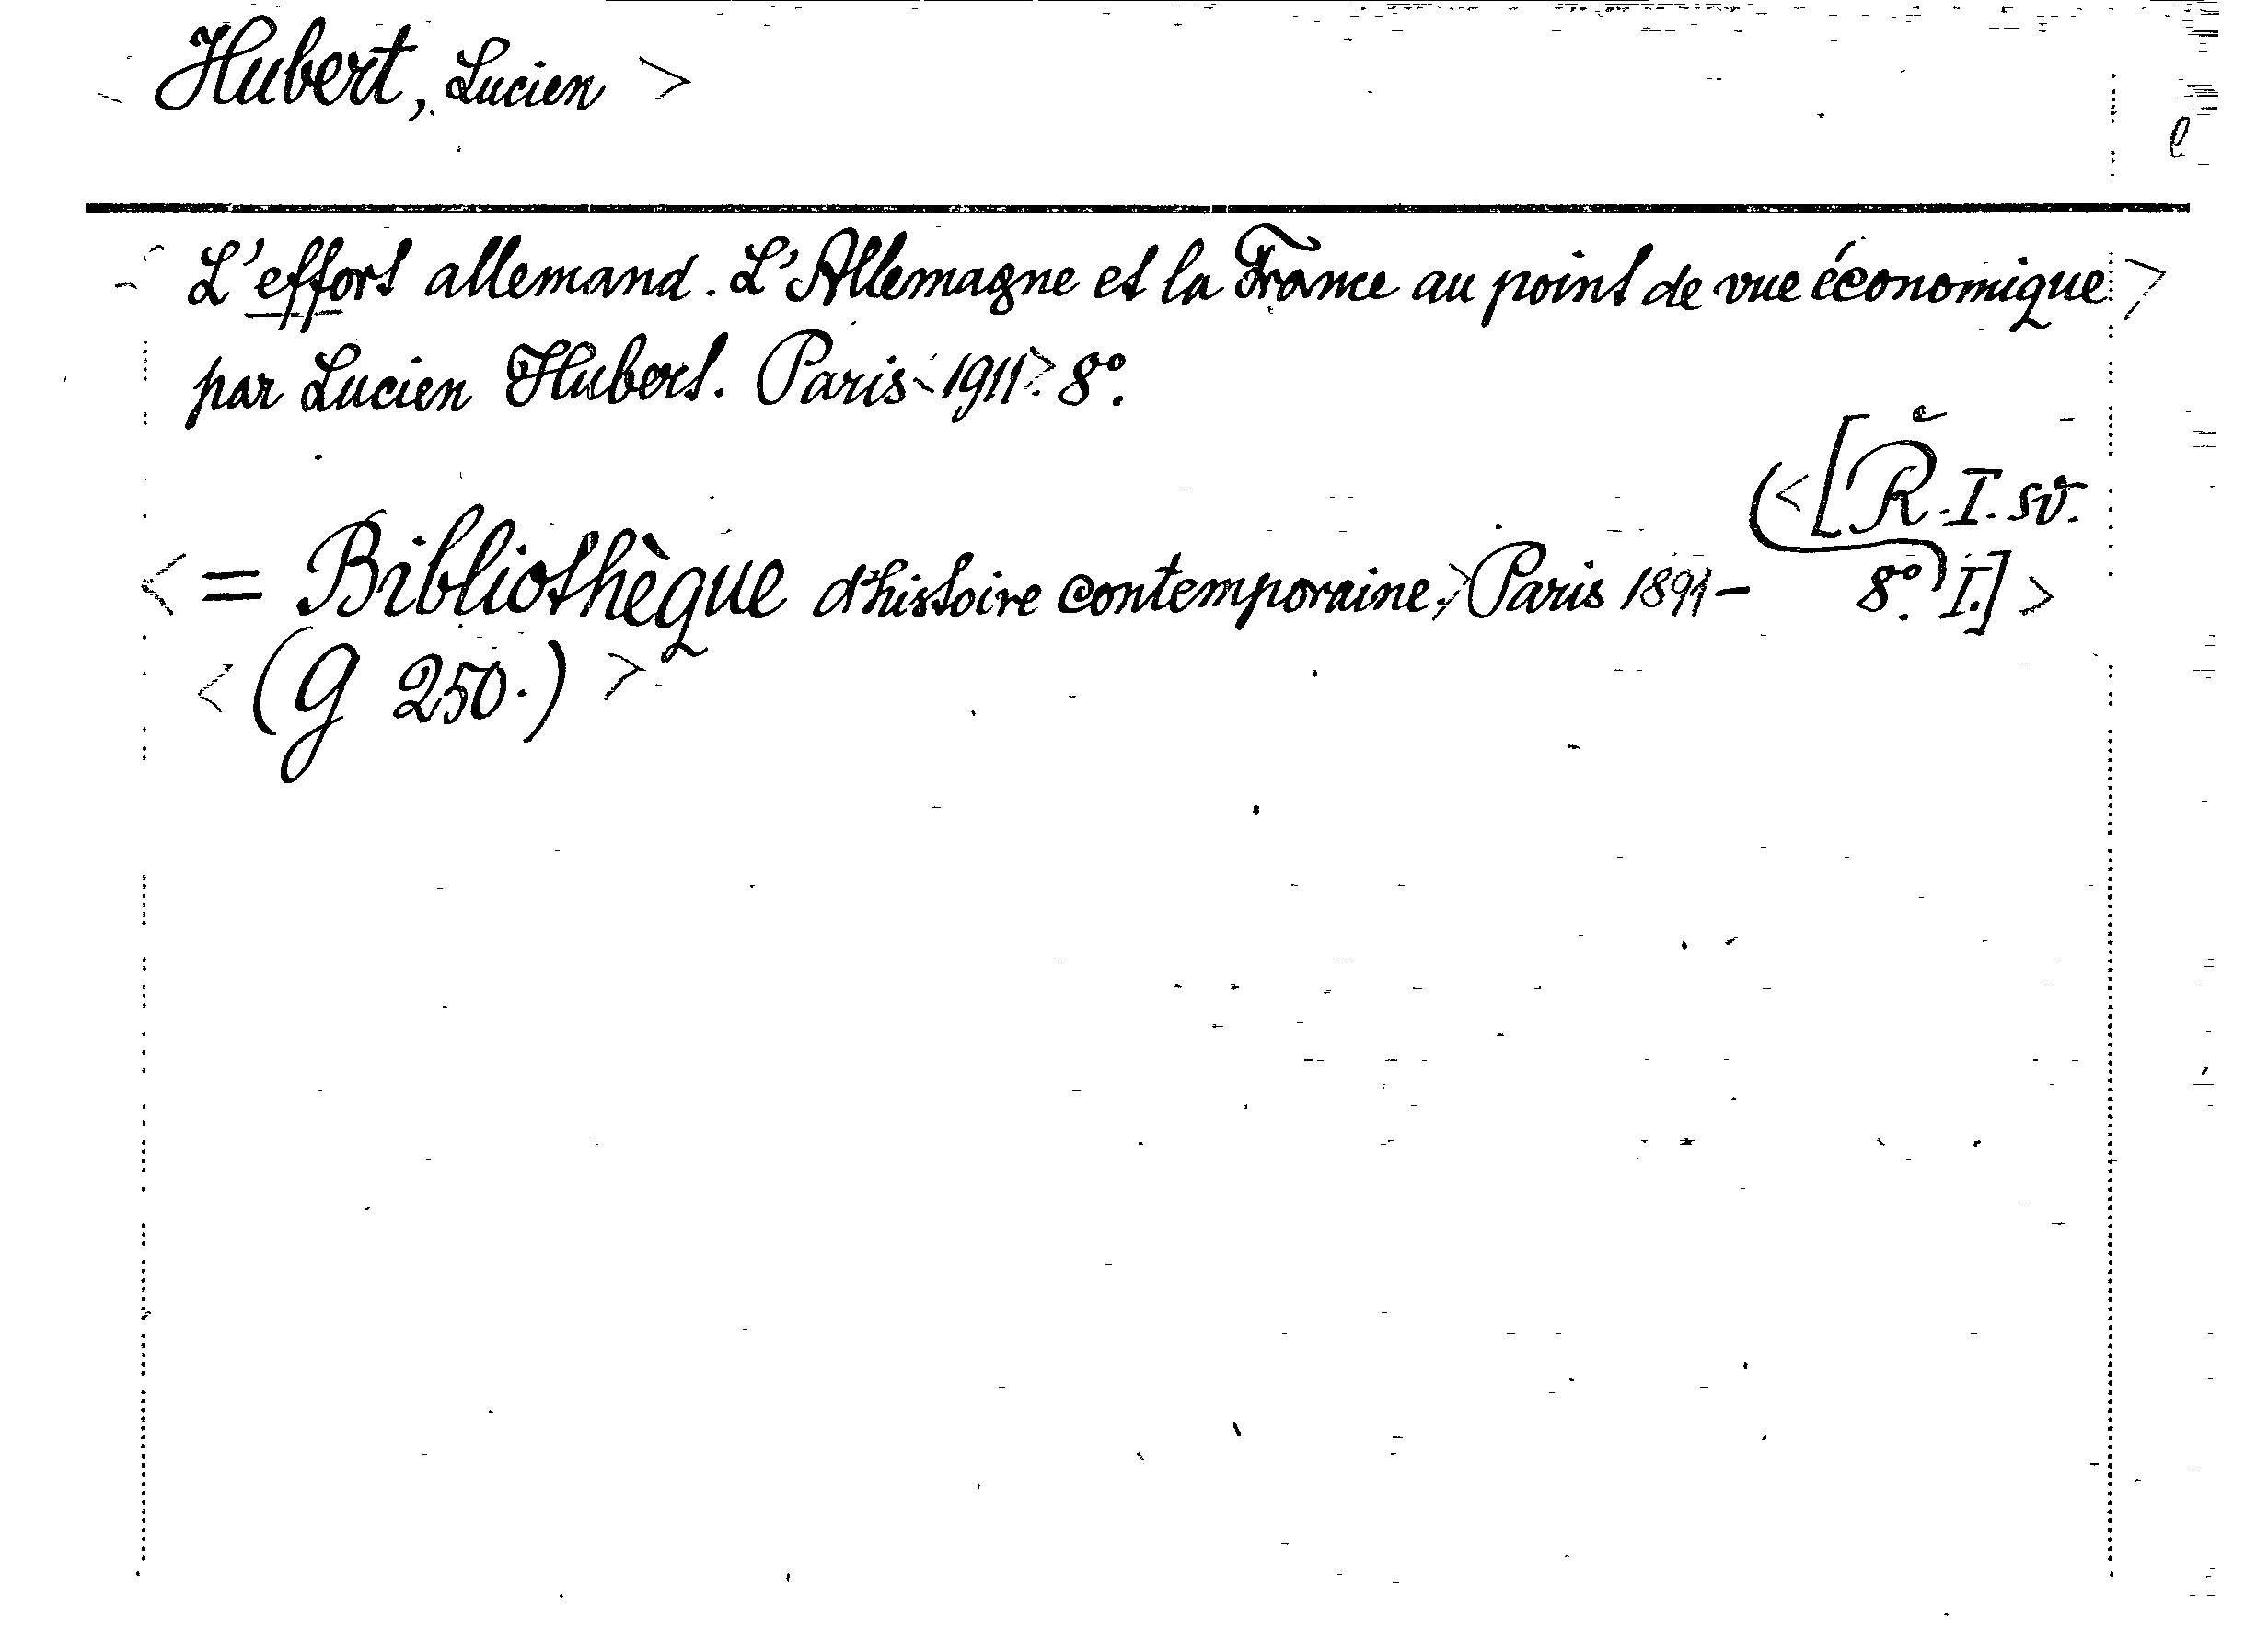 Hubert, Lucien >
l
L'effort allemand. L'Allemagne et la France au point de vue économique >
par Lucien Hubert. Paris < 1911 >. 8º.
(< [Ř. I. sv.
< = Bibliothèque d'histoire contemporaine. > Paris 1891 – 8º.) I.] >
< (G 250.) >